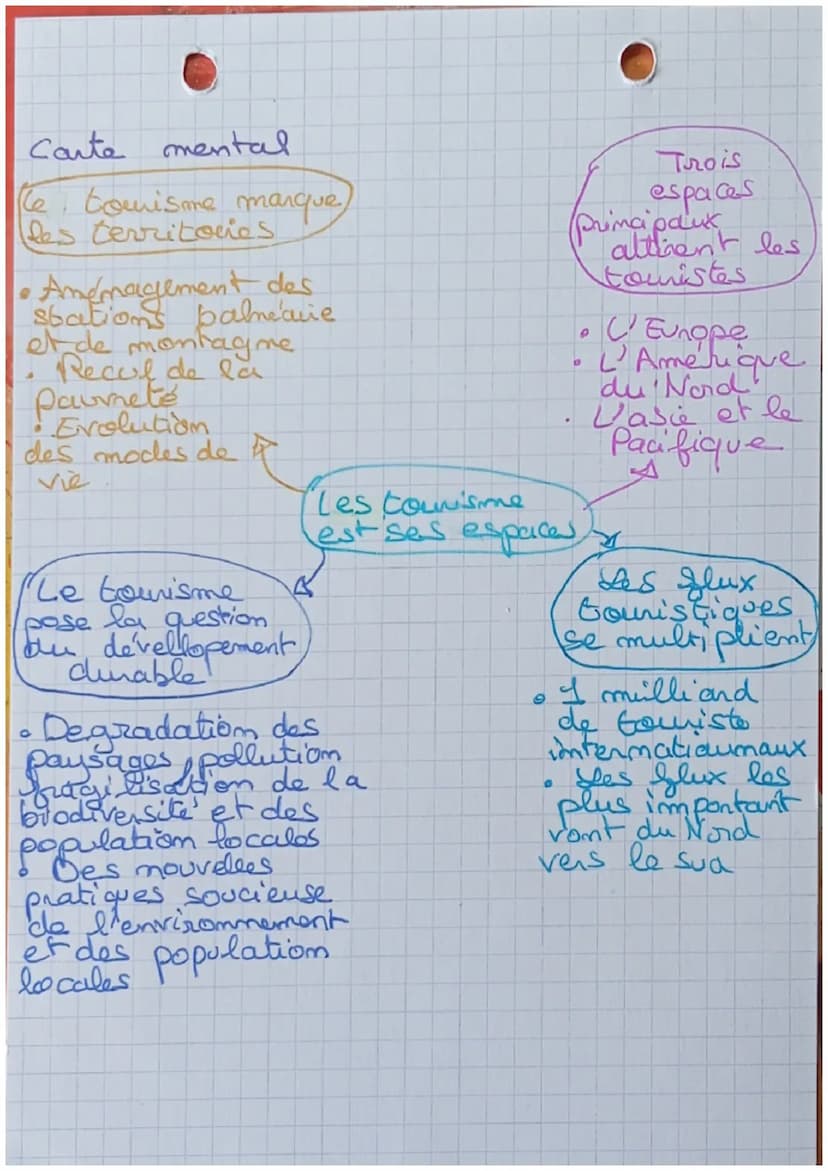 Carte mental
Le tourisme marque
les territories
• Aménagement des
stations balnéaire
et de montagne
• Recul de la
pauvreté
• Evolution
des modes de
vie
Trois
espaces
principaux
attirent les
touristes
• L'Europe
• L'Amérique
du Nord
• L'asie et le
Pacifique
Les tourisme
est ses espaces
Le tourisme
pose la question
du dévellopement
durable
• Degradation des
paysages, pollution
fragilisation de la
biodiversité et des
population locales
• Des nouvelles
pratiques soucieuse
de l'environnement
et des population
locales
Les flux
touristiques
se multiplient
• 1 milliard
de touriste
internatiounaux
• Les flux les
plus important
vont du Nord
vers le sud